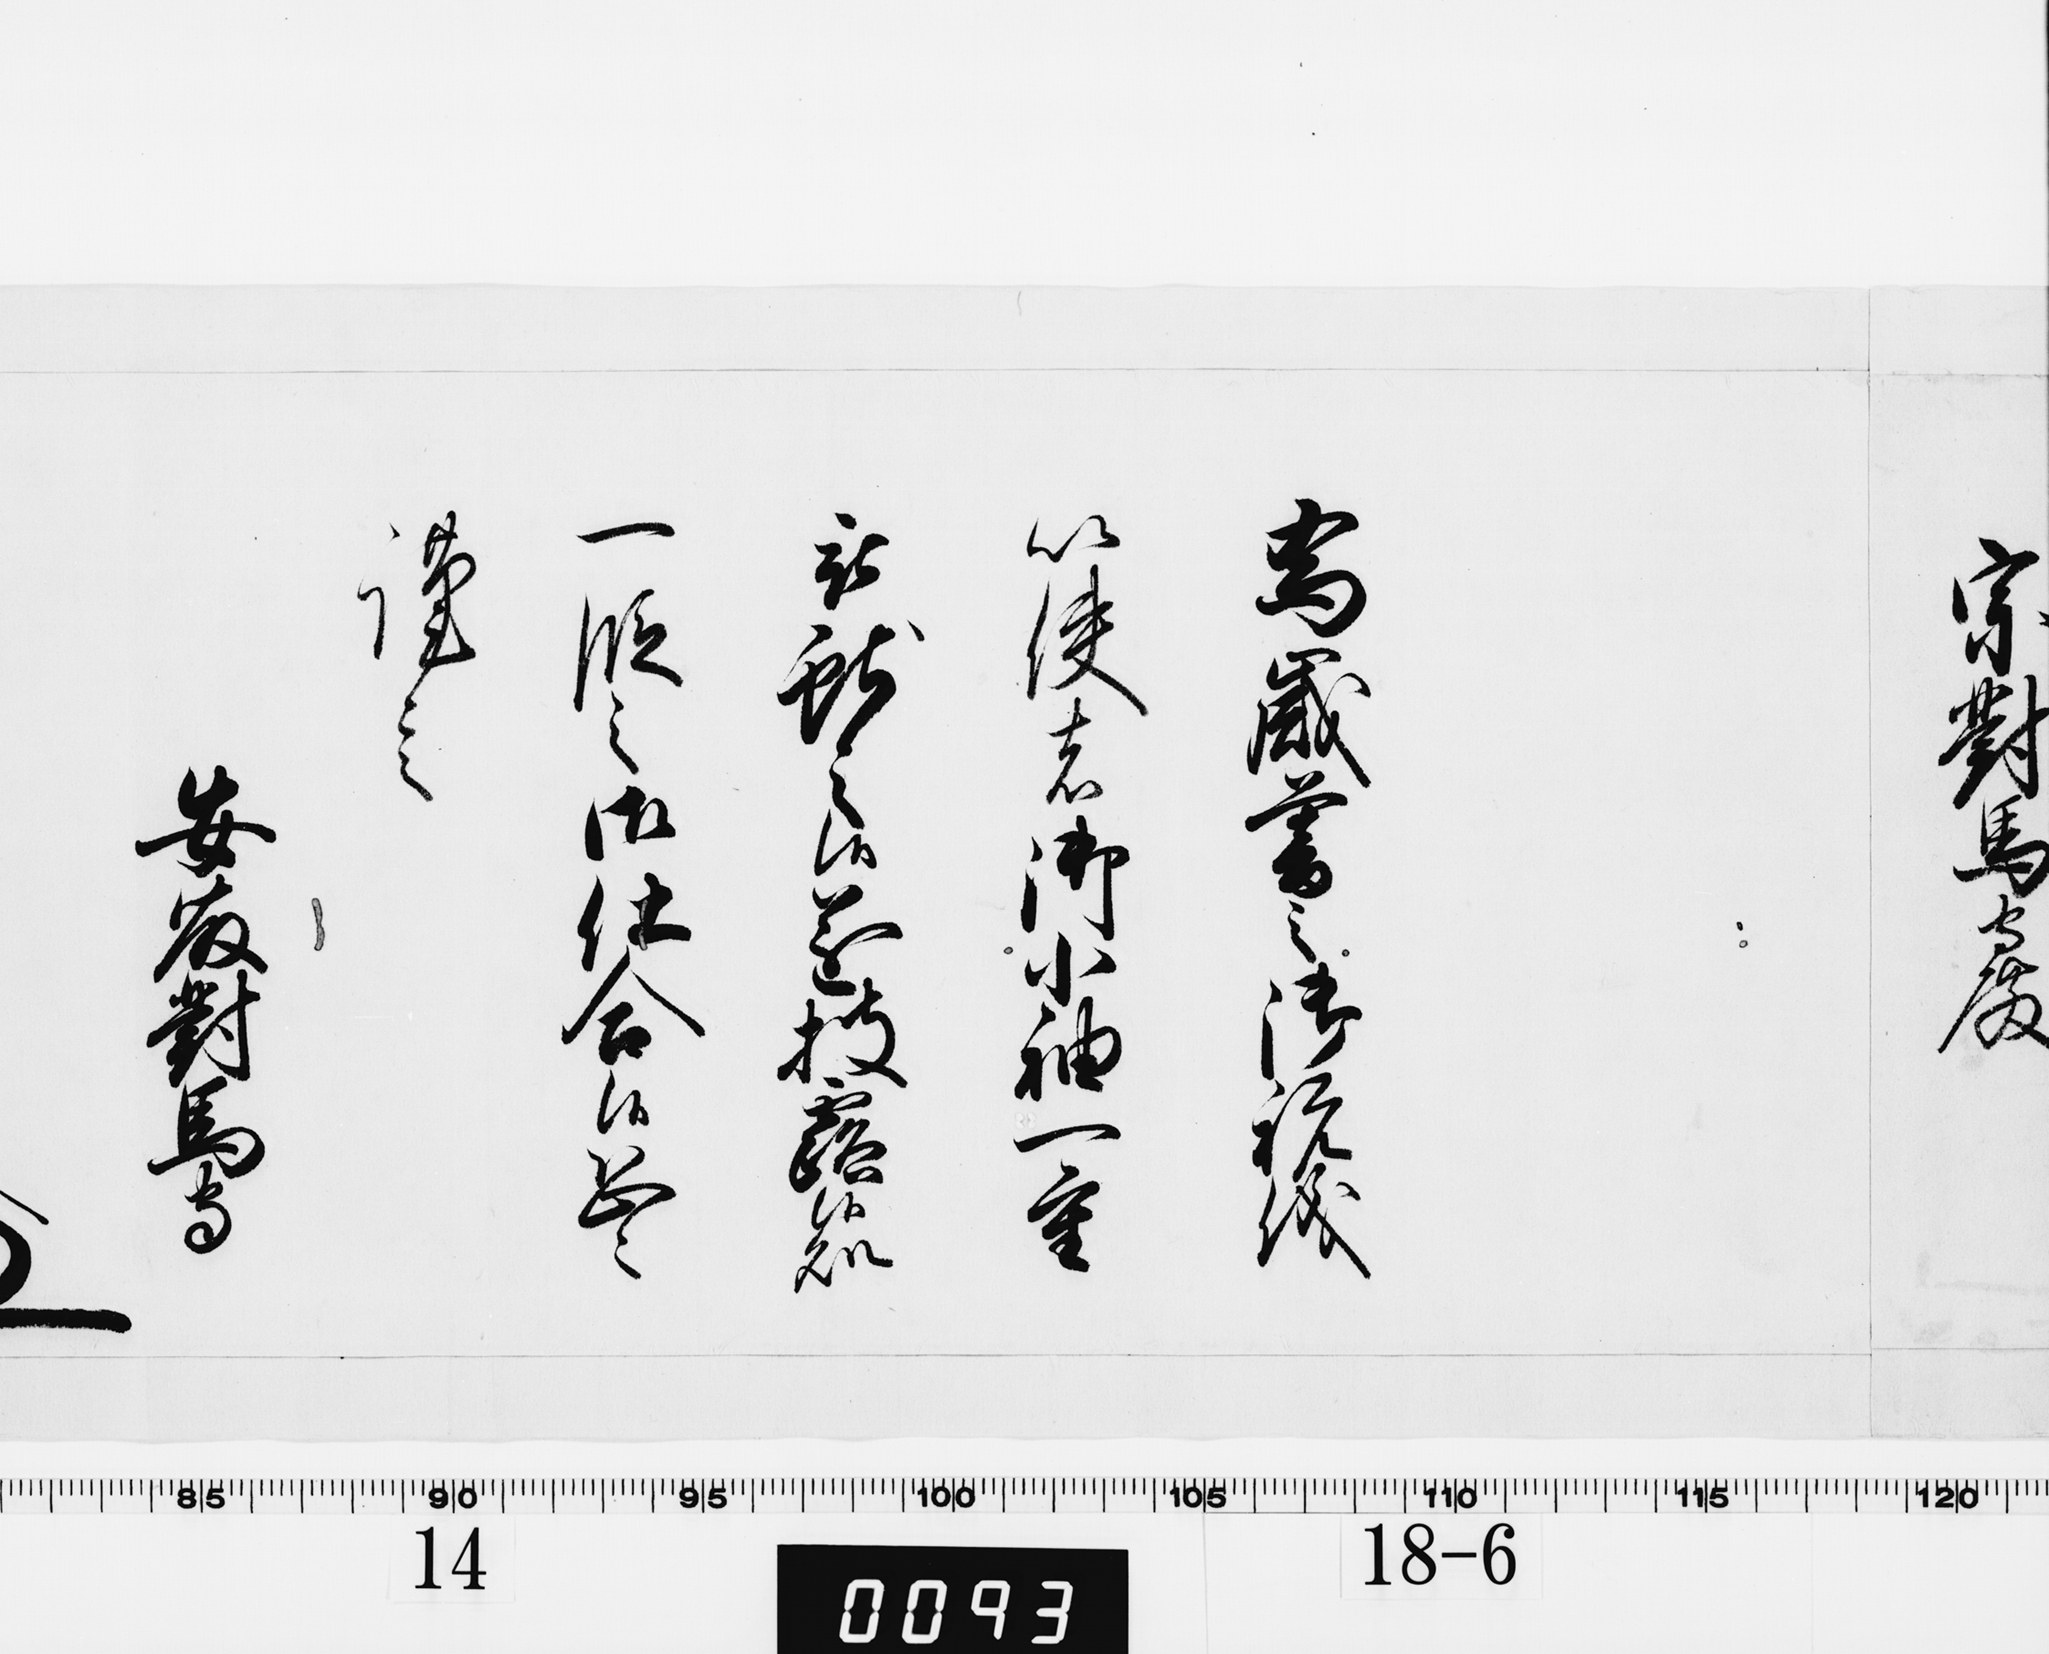 宗對馬守殿
當歳暮之御祝儀
以使者御小袖一重
被獻之候遂披露候処
一段之御仕合候恐々
謹言
安藤對馬守
85 90 95 100 105 110 115 120
14
18-6
0093